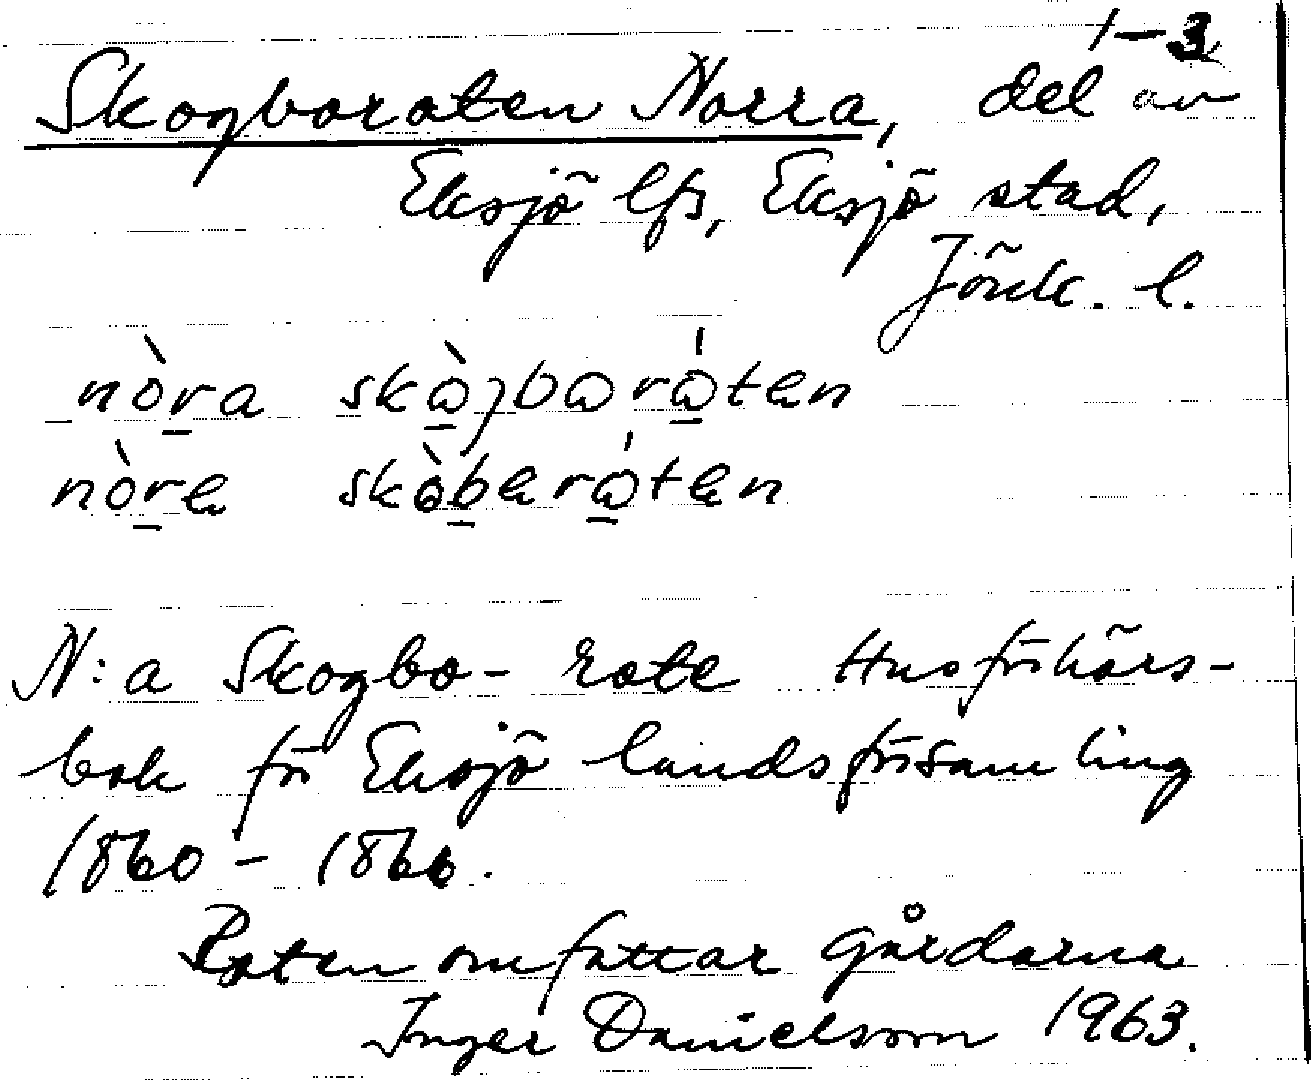 1–3
Skogboroten Norra, del av
Eksjö lfs, Eksjö stad,
Jönk. l.
nòra skòjborótən
nòrə skòbərótən
N:a Skogbo- rote Husförhörs-
bok för Eksjö landsförsamling
1860 – 1866.
Roten omfattar gårdarna
Inger Danielsson 1963.